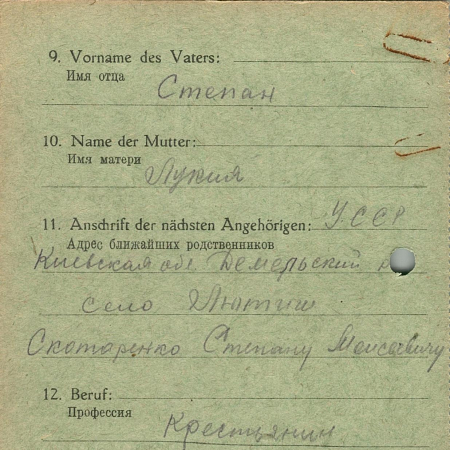 9. Vorname des Vaters:
Имя отца
Степан
10. Name der Mutter:
Имя матери
Лукия
11. Anschrift der nächsten Angehörigen: УССР
Адрес ближайших родственников
Киевская обл Демерьский
село Лютиш
Скотаренко Степану Моисеевичу
12. Beruf:
Профессия
Крестьянин